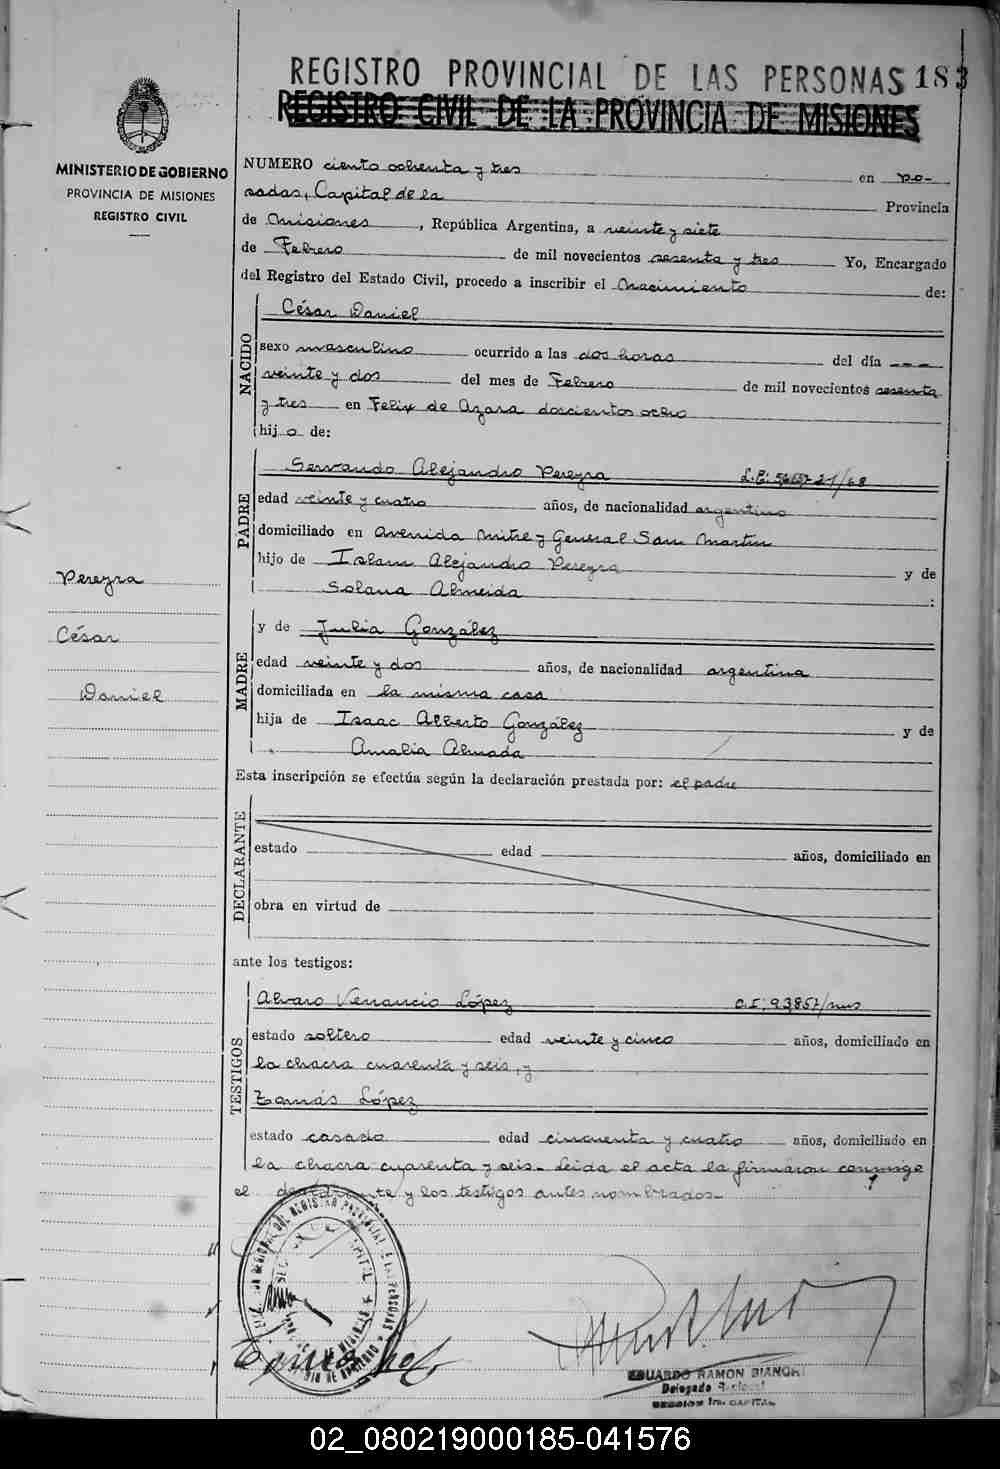 REGISTRO PROVINCIAL DE LAS PERSONAS 183
REGISTRO CIVIL DE LA PROVINCIA DE MISIONES
MINISTERIO DE GOBIERNO
PROVINCIA DE MISIONES
REGISTRO CIVIL
NUMERO ciento ochenta y tres en Po-
sadas, Capital de la Provincia
de Misiones, República Argentina, a veinte y siete
de Febrero de mil novecientos sesenta y tres Yo, Encargado
del Registro del Estado Civil, procedo a inscribir el Nacimiento de:
NACIDO
César Daniel
sexo masculino ocurrido a las dos horas del día ---
veinte y dos del mes de Febrero de mil novecientos sesenta
y tres en Felix de Azara doscientos ocho
hijo de:
PADRE
Servando Alejandro Pereyra L.E:
edad veinte y cuatro años, de nacionalidad argentino
domiciliado en Avenida Mitre y General San Martin
hijo de Alejandro Pereyra y de
Solana Almeida
Pereyra
César
Daniel
MADRE
y de Julia González
edad veinte y dos años, de nacionalidad argentina
domiciliada en la misma casa
hija de Isaac Alberto González y de
Amalia Almada
Esta inscripción se efectúa según la declaración prestada por: el padre
DECLARANTE
estado edad años, domiciliado en
obra en virtud de
ante los testigos:
TESTIGOS
Alvaro Venancio López C.I: 93857/mns
estado soltero edad veinte y cinco años, domiciliado en
la chacra cuarenta y seis, y
Tomás López
estado casado edad cincuenta y cuatro años, domiciliado en
la chacra cuarenta y seis- Leida el acta la firmaron conmigo
el declarante y los testigos antes nombrados-
EDUARDO RAMON BIANCHI
Delegado Regional
SECCION 1ra. CAPITAL
02_080219000185-041576